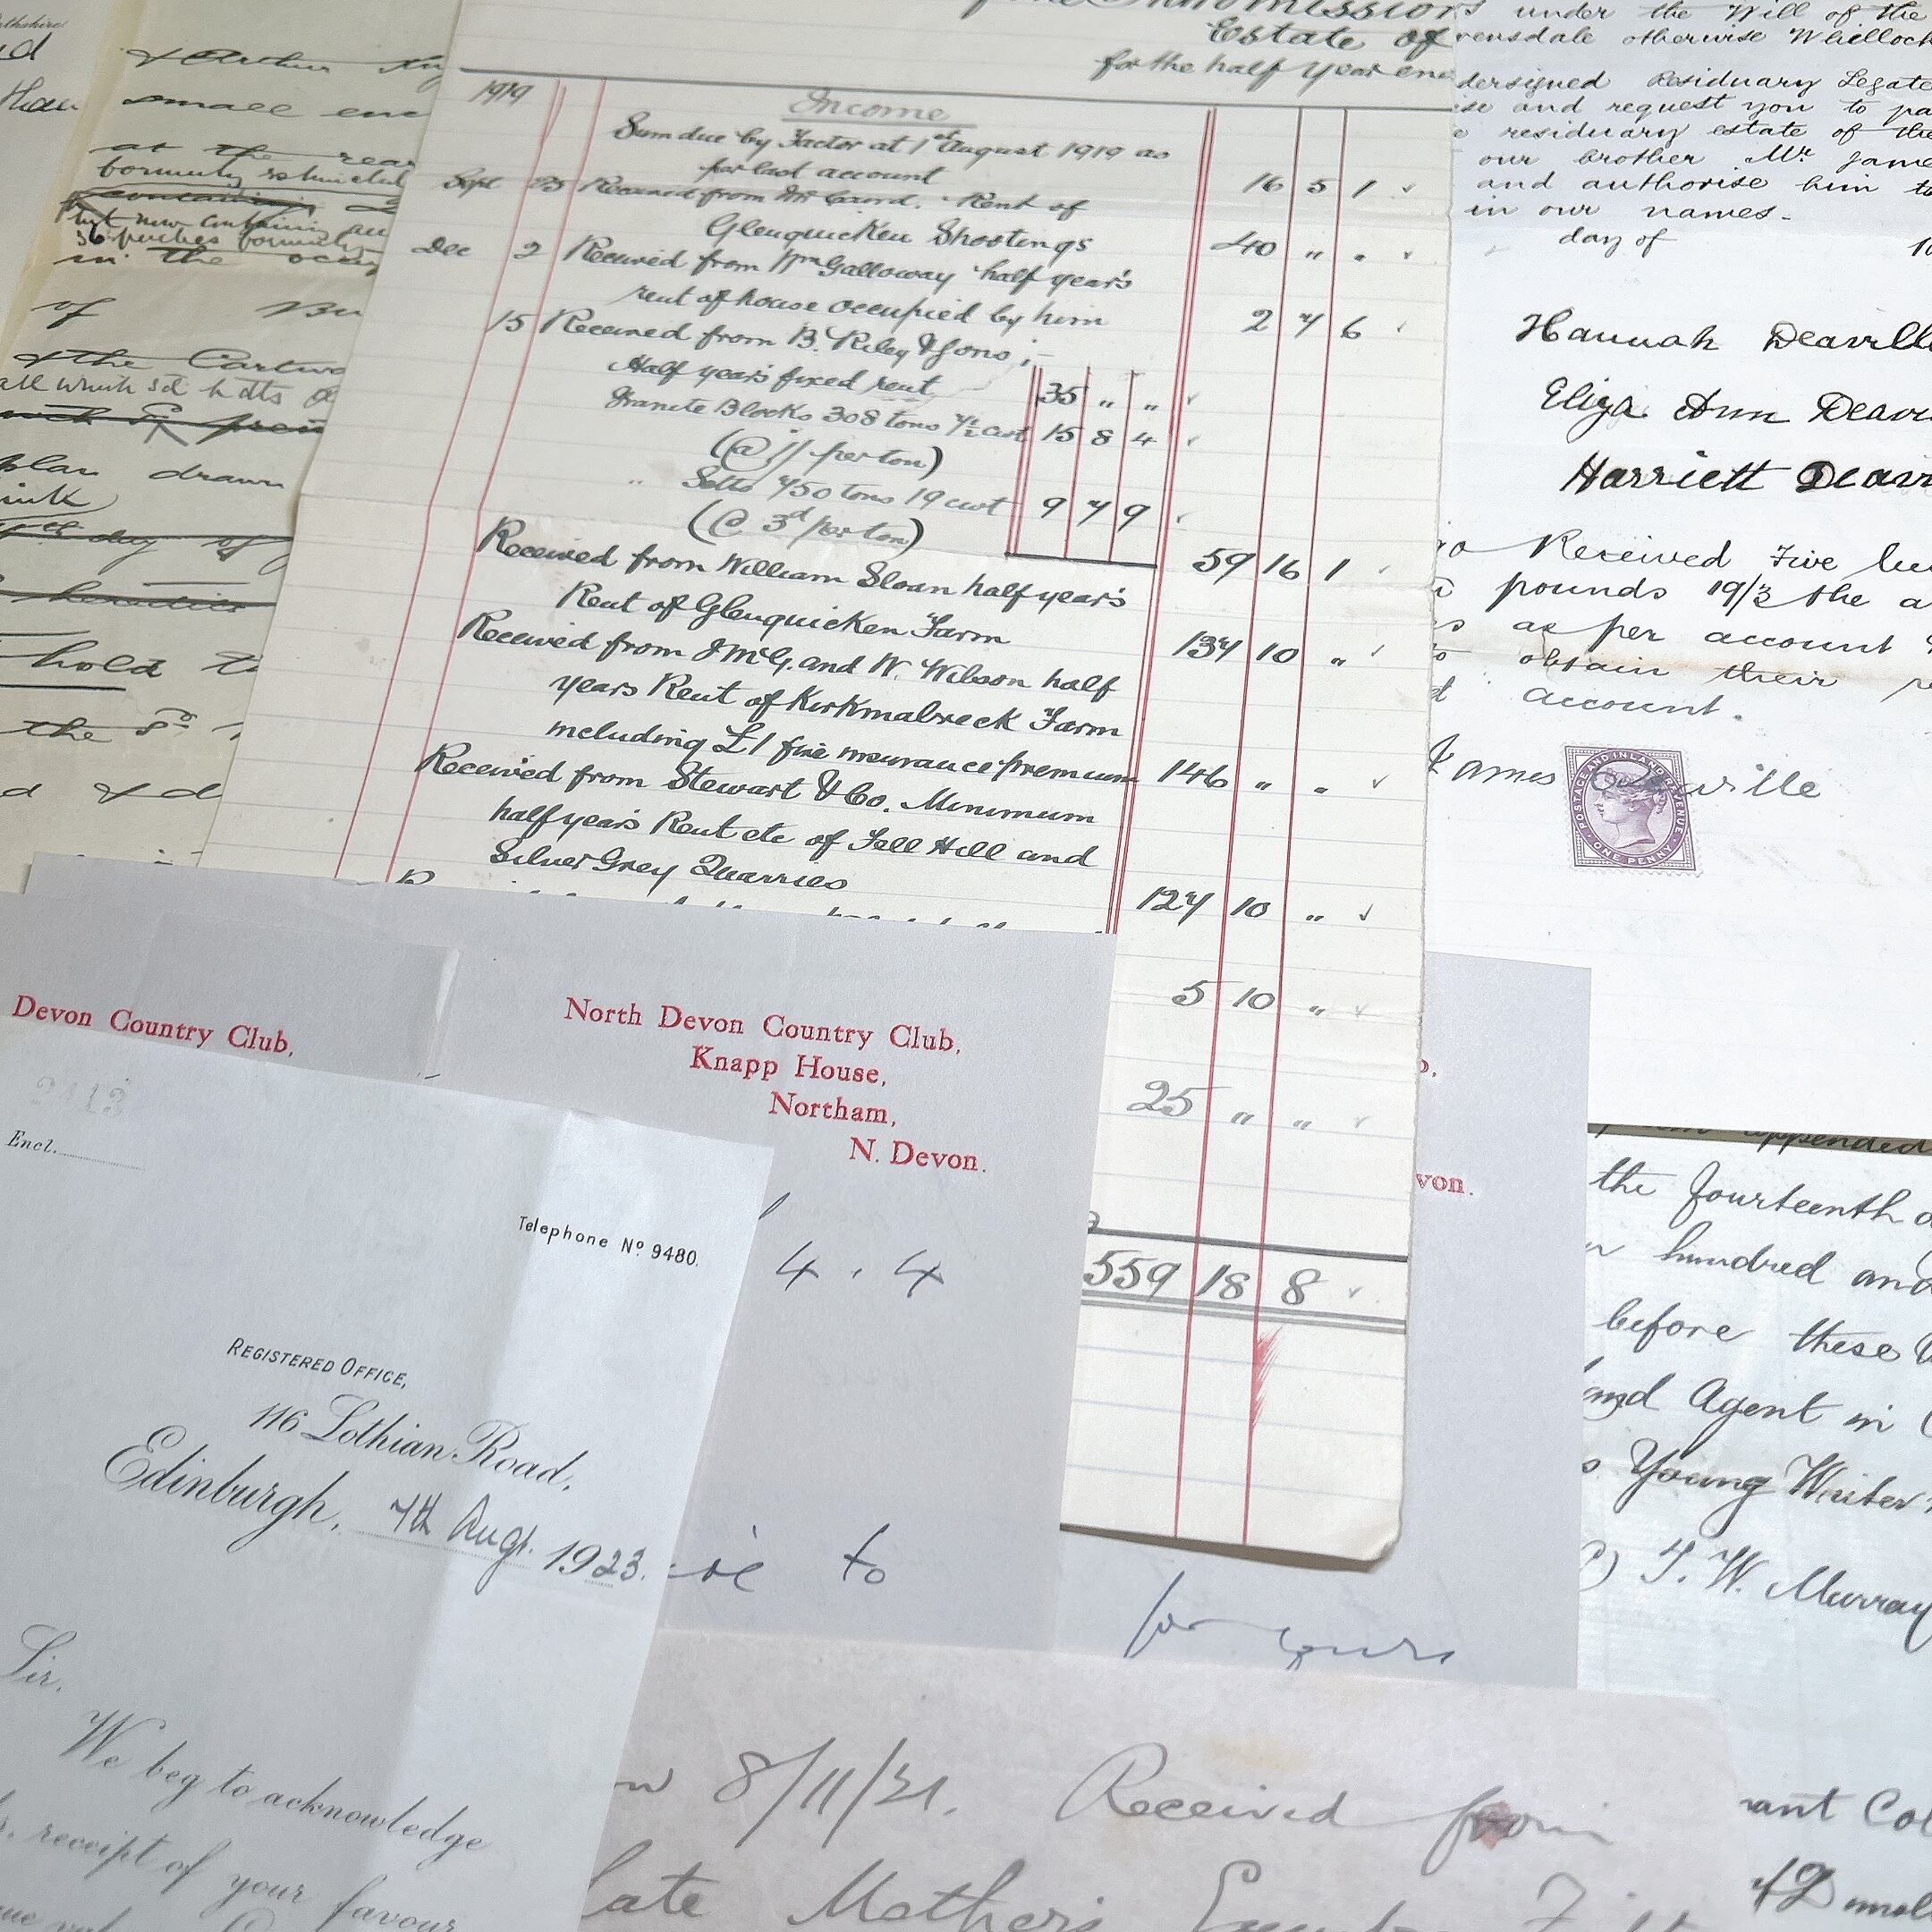 & Arthur
small enc
at the rear
formerly
but now containing
36 perches formerly
in the occu
of
& the
all which sd
plan drawn
ink)
day of
hold
the
Estate of
for the half year en
1919
Income
Sum due by Factor at 1st August 1919 as
per last account 16 5 1
Sept 25 Received from Mr Caird. Rent of
Glenquicken Shootings 40 " "
Dec 2 Received from Wm Galloway half year's
rent of house occupied by him 2 7 6
15 Received from B. Riley & Sons ;-
Half year's fixed rent 35 " "
Granite Blocks 308 tons 7½ cwt 15 8 4
(@ 1/ per ton)
" Setts 750 tons 19 cwt 9 7 9
(@ 3d per ton)
59 16 1
Received from William Sloan half year's
Rent of Glenquicken Farm 137 10 "
Received from J McG. and W. Wilson half
years Rent of Kirkmabreck Farm
including £1 fire insurance premium 146 " "
Received from Stewart & Co. Minimum
half year's Rent etc of Fell Hill and
Silver Grey Quarries
127 10 "
5 10 "
25 " "
559 18 8
under the Will of the
otherwise Whellock
dersigned Residuary Legate
and request you to pa
residuary estate of the
our brother Mr Jame
and authorise him to
in our names.-
day of
Hannah Deavill
Eliza Ann Deav
Harriett Deav
Received Five hu
pounds 19/3 the a
as per account
to obtain their
account.
James Deaville
POSTAGE AND INLAND REVENUE
ONE PENNY
appended
the fourteenth d
hundred and
before these W
and Agent in
Young Writer
T. W. Murray
Devon Country Club,
North Devon Country Club,
Knapp House,
Northam,
N. Devon.
von.
4 . 4
to
for yours
Encl.
Telephone No. 9480.
REGISTERED OFFICE,
116 Lothian Road,
Edinburgh, 7th Augt. 1923.
Sir,
We beg to acknowledge
receipt of your favour
8/11/21. Received from
late Mothers